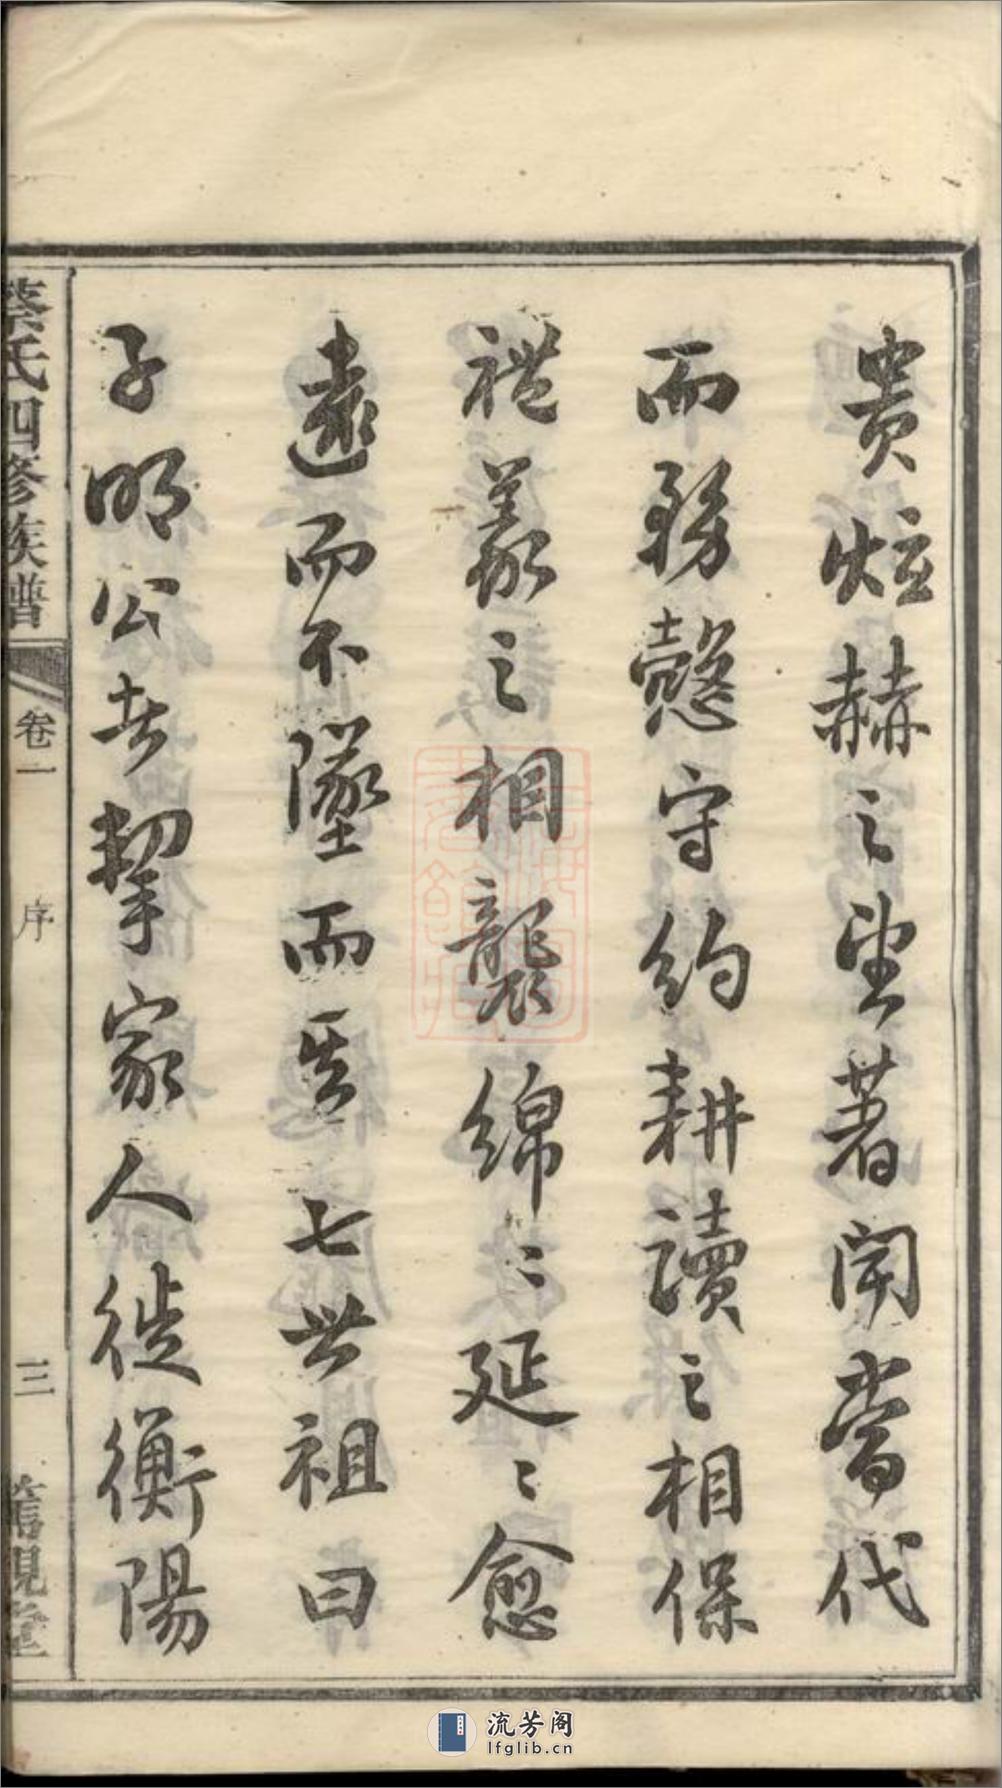 貴炫赫之望著聞當代
而務慤守約耕讀之相保
禮義之相襲綿〻延〻愈
遠而不墜而其七世祖曰
子明公者挈家人徙衡陽
蔡氏四修族譜
卷一
序
三
篤親堂
流芳阁
lfglib.cn